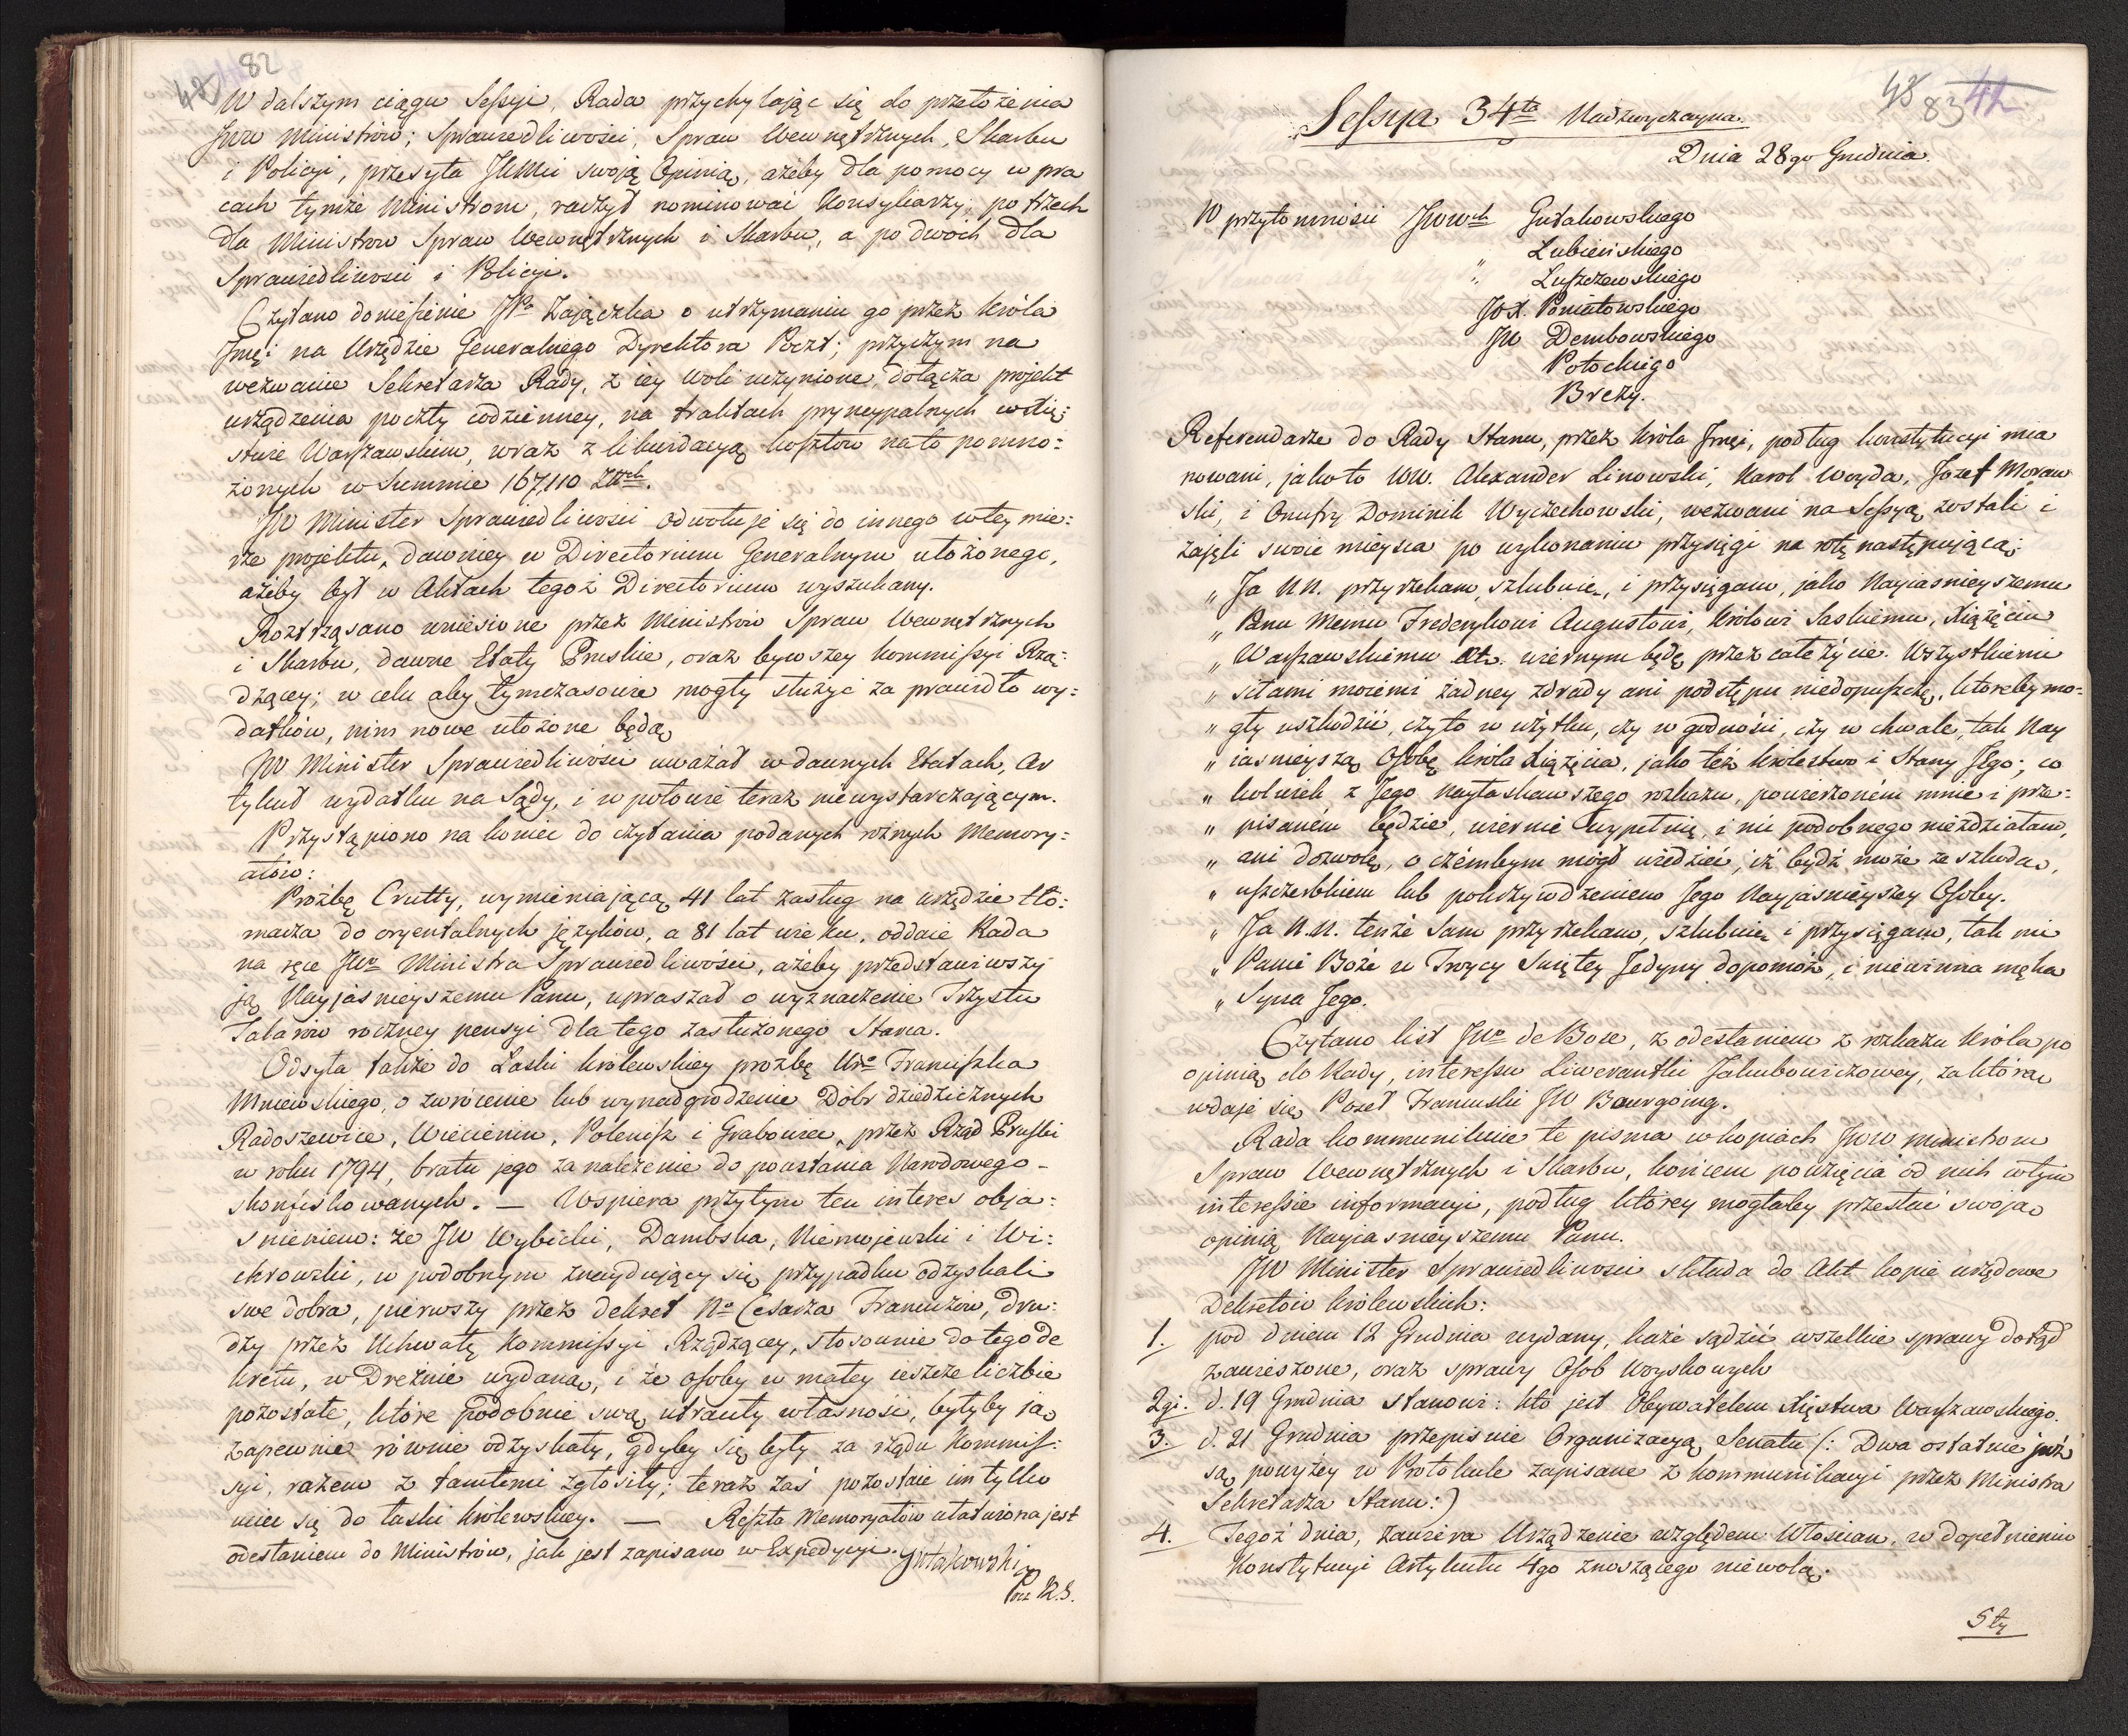 82
42
W dalszym ciągu Sessyi, Rada przychylając się do przełożenia
JWW Ministrów; Sprawiedliwości, Spraw Wewnętrznych, Skarbu
i Policyi, przesyła JKMci swoją Opinią, ażeby dla pomocy w pra
cach tymże Ministrom, raczył nominować Konsyliarzy, po trzech
dla Ministrów Spraw Wewnętrznych i Skarbu, a po dwóch dla
Sprawiedliwości i Policyi.
Czytano doniesienie JPa Zajączka o utrzymaniu go przez Króla
Jmci na Urzędzie Generalnego Dyrektora Poczt; przyczym na
wezwanie Sekretarza Rady, z iey woli uczynione, dołącza projekt
urządzenia poczty codzienney, na traktach pryncypalnych w Xię:
stwie Warszawskim, wraz z likwidacyą kosztów na to pomno:
żonych w Summie 167,110 Złłch.
JW Minister Sprawiedliwości odwołuje się do innego w tey mie:
rze projektu, dawniey w Directorium Generalnym ułożonego,
ażeby był w Aktach tegoż Directorium wyszukany.
Roztrząsano wniesione przez Ministrów Spraw Wewnętrznych
i Skarbu, dawne Etaty Pruskie, oraz bywszey Kommissyi Rzą:
dzącey; w celu aby tymczasowie mogły służyć za prawidło wy:
datków, nim nowe ułożone będą.
JW Minister Sprawiedliwości uważał w dawnych Etatach, Ar
tykuł wydatku na Sądy, i w połowie teraz niewystarczającym.
Przystąpiono na koniec do czytania podanych różnych Memory:
ałów:
Prożbę Crutty, wymieniającą 41 lat zasług na urzędzie tło:
macza do oryentalnych języków, a 81 lat wieku, oddaie Rada
na ręce JWo Ministra Sprawiedliwości, ażeby przedstawiwszy
ją Nayjaśnieyszemu Panu, upraszał o wyznaczenie Trzystu
Talarów roczney pensyi dla tego zasłużonego Starca.
Odsyła także do Łaski królewskiey prozbę Uro Franciszka
Mniewskiego, o zwrócenie lub wynadgrodzenie Dóbr dziedzicznych
Radoszewice, Wiecienin, Polenisz i Grabowiec, przez Rząd Pruski
w roku 1794, bratu jego za należenie do powstania Narodowego -
skonfiskowanych. — Wspiera przytym ten interes obja:
śnieniem: że JW Wybicki, Dambska, Niemojewski i Wi:
chrowski, w podobnym znaydujący się przypadku odzyskali
swe dobra, pierwszy przez dekret No Cesarza Francuzów, dru:
dzy przez Uchwałę Kommissyi Rządzącey, stosownie do tego de
kretu, w Dreznie wydaną, i że osoby w małey ieszcze liczbie
pozostałe, które podobnie swą utraciły własność, byłyby ją
zapewnie równie odzyskały, gdyby się były za rządu Kommis:
syi, razem z tamtemi zgłosiły; teraz zaś pozostaie im tylko
uciec się do łaski królewskiey. — Reszta Memoryałów ułatwiona jest
odesłaniem do Ministrów, jak jest zapisano w Expedycyi. Gutakowski
Prez R.S.
43 83 42
Sessya 34ta Nadzwyczayna.
Dnia 28go Grudnia.
W przytomności JWWch Gutakowskiego
" Lubieńskiego
" Luszczewskiego
JOX. Poniatowskiego
JW Dembowskiego
Potockiego
Brezy.
Referendarze do Rady Stanu, przez Króla Jmci, podług konstytucyi mia
nowani, jako to WW. Alexander Linowski, Karol Woyda, Jozef Moraw
ski, i Onufry Dominik Wyczechowski, wezwani na Sessyą zostali i
zajęli swoie mieysca po wykonaniu przysięgi na rotę następuiącą:
„ Ja NN. przyrzekam, szlubuię, i przysięgam, jako Nayiasnieyszemu
„ Panu Memu Frederykowi Augustowi, Królowi Saskiemu, Xiążęciu
„ Warszawskiemu etc. wiernym będę przez całe życie. Wszystkiemi
„ siłami moiemi żadney zdrady ani podstępu niedopuszczę, któreby mo:
„ gły uszkodzić, czyto w użytku, czy w godności, czy w chwale, tak Nay
„ iaśnieyszą Osobę Króla Xiążęcia, jako też królestwo i Stany Jego; co
„ kolwiek z Jego nayłaskawszego rozkazu, powierzoném mnie i prze:
„ pisaném będzie, wiernie wypełnię, i nic podobnego niezdziałam,
„ ani dozwolę, o czémbym mógł wiedzieć, iż bydź może ze szkodą,
„ uszczerbkiem lub pokrzywdzeniem Jego Nayjaśnieyszey Osoby.
„ Ja N.N. tenże sam przyrzekam, szlubuię i przysięgam, tak mi
„ Panie Boże w Troycy Świętey Jedyny dopomóż, i niewinna męka
„ Syna Jego.
Czytano list JWo de Bose, z odesłaniem z rozkazu Króla po
opinią do Rady, interessu Liwerantki Jakubowiczowey, za którą
wdaje się Poseł Francuski JW Bourgoing.
Rada kommunikuie te pisma w kopiach JWW Ministrom
Spraw Wewnętrznych i Skarbu, końcem powzięcia od nich w tym
interessie informacyi, podług którey mogłaby przesłać swoją
opinią Nayiaśnieyszemu Panu.
JW Minister Sprawiedliwości składa do Akt kopie urzędowe
Dekretów królewskich:
1. pod dniem 12 Grudnia wydany, każe sądzić wszelkie sprawy dotąd
zawieszone, oraz sprawy Osob Woyskowych
2gi. d. 19 Grudnia stanowi: kto jest Obywatelem Xięstwa Warszawskiego.
3. d. 21 Grudnia przepisuie Organizacyą Senatu /: Dwa ostatnie już
są powyżey w Protokule zapisane z kommunikacyi przez Ministra
Sekretarza Stanu:)
4. Tegoż dnia, zawiera Urządzenie względem Włościan, w dopełnieniu
Konstytucyi Artykułu 4go znoszącego niewolą.
5ty